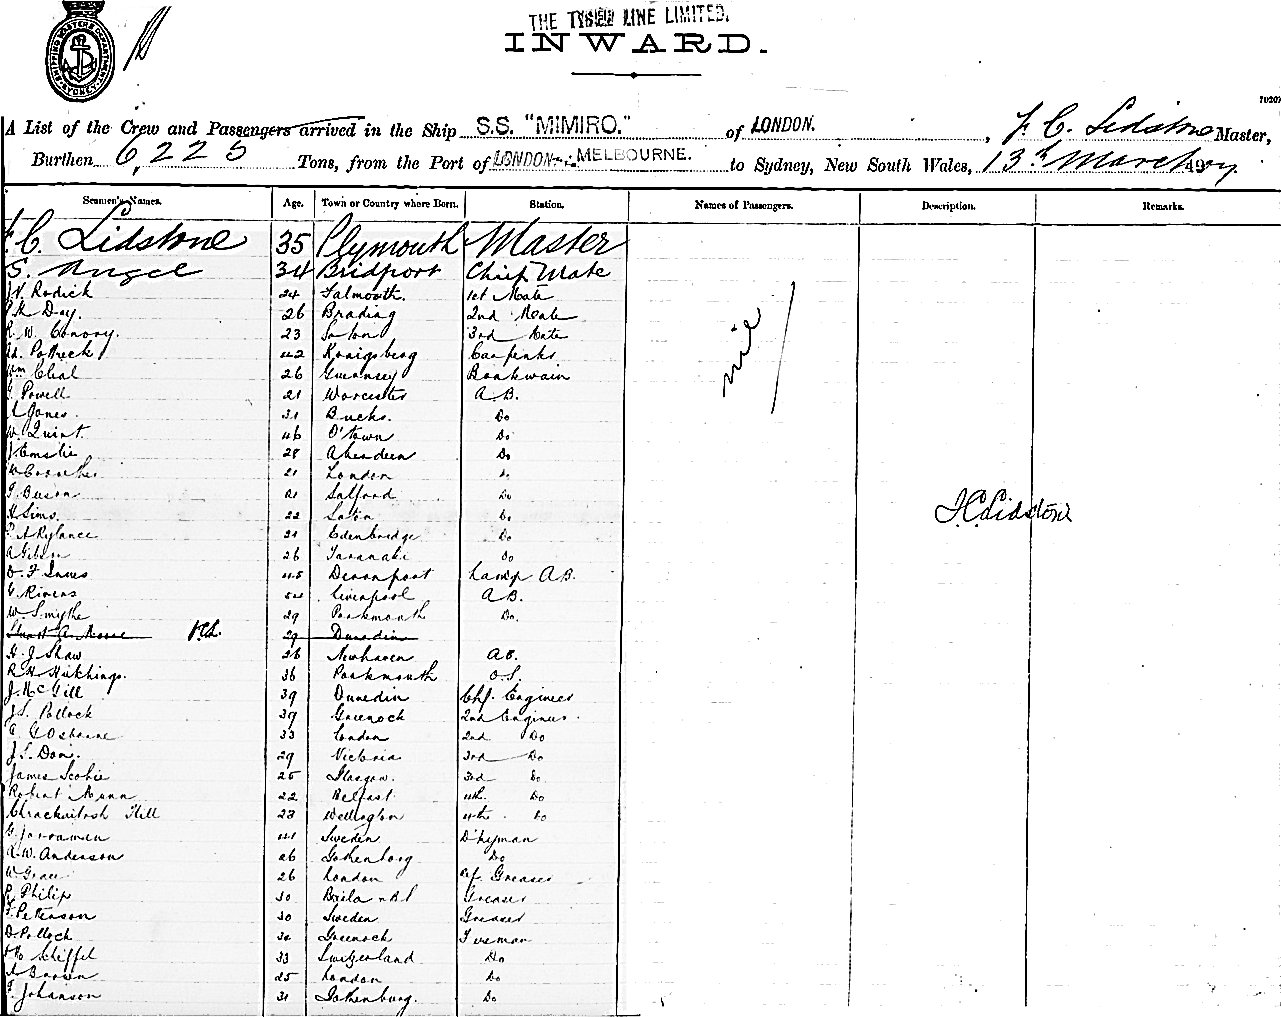 THE TYSER LINE LIMITED.
INWARD.
SHIPPING MASTERS DEPARTMENT SYDNEY
A List of the Crew and Passengers arrived in the Ship S.S. "MIMIRO." of LONDON. , F. C. Lidstone Master,
Burthen 6,225 Tons, from the Port of LONDON MELBOURNE. to Sydney, New South Wales, 13th March 1907.
Seamen's Names. Age. Town or Country where Born. Station. Names of Passengers. Description. Remarks.
F. C. Lidstone 35 Plymouth Master
S. Angel 34 Bridport Chief Mate
Rodick 24 Falmouth. 1st Mate
Day. 26 Brading 2nd Mate
R. W. Conory. 23 3rd Mate
42 Konigsberg
Wm Clial 26 Guernsey
G. Powell 21 Worcester A.B.
A Jones. 31 Bucks. Do
W. Quint. 46 O'town Do
J Emslie 28 Aberdeen Do
21 London Do
21 Salford Do
H Sims. 22 Do
A Rylance 21 Edenbridge Do
A Gibson 26 Taranaki Do
Innes 45 Devonport Lamp A.B.
G. Rivers 54 Liverpool A.B.
W Smythe 29 Portsmouth Do.
Stuart A. Moore 29 Dunedin
H. J. Shaw 26 Newhaven A.B.
R H Hutchings. 36 Portsmouth O.S.
J. McGill 39 Dunedin Chf. Engineer
J. S. Pollock 39 Greenock 2nd Engineer.
G Osborne 33 London 2nd Do
J. S. 29 Victoria 3rd Do
James Scobie 25 Glasgow. 3rd Do
Robert Mann 22 Belfast 4th. Do
Hill 23 Wellington 4th. Do
G. 41 Sweden D'kyman
W. Anderson 26 Gothenborg Do
W Grace 26 London Ref. Greaser
Philip 30 Greaser
F. Peterson 30 Sweden Greaser
D. Pollock 30 Greenock Fireman
Schiffel 33 Switzerland Do
A Brown 25 London Do
Johanson 31 Gothenburg. Do
nil
F. C. Lidstone